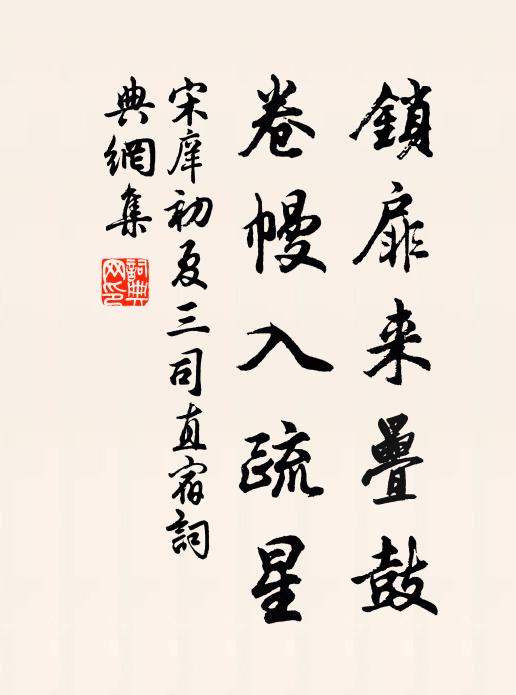 鎖扉来疊鼓
卷幔入疏星
宋庠初夏三司直宿詞
典網集
詞典网印